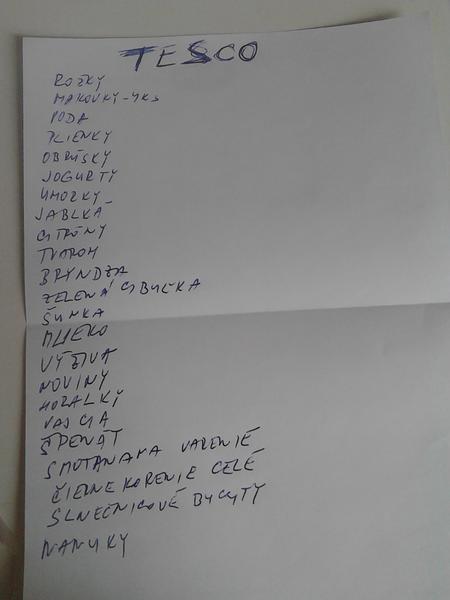 TESCO
ROŽKY
MAKOVKY-4KS
VODA
PLIENKY
OBRÚSKY
JOGURTY
UHORKY
JABLKÁ
CITRÓNY
TVAROH
BRYNDZA
ZELENÁ CIBUĽKA
ŠUNKA
MLIEKO
VÝŽIVA
NOVINY
HORALKY
VAJCIA
ŠPENÁT
SMOTANA NA VARENIE
ČIERNE KORENIE CELÉ
SLNEČNICOVÉ
NANUKY